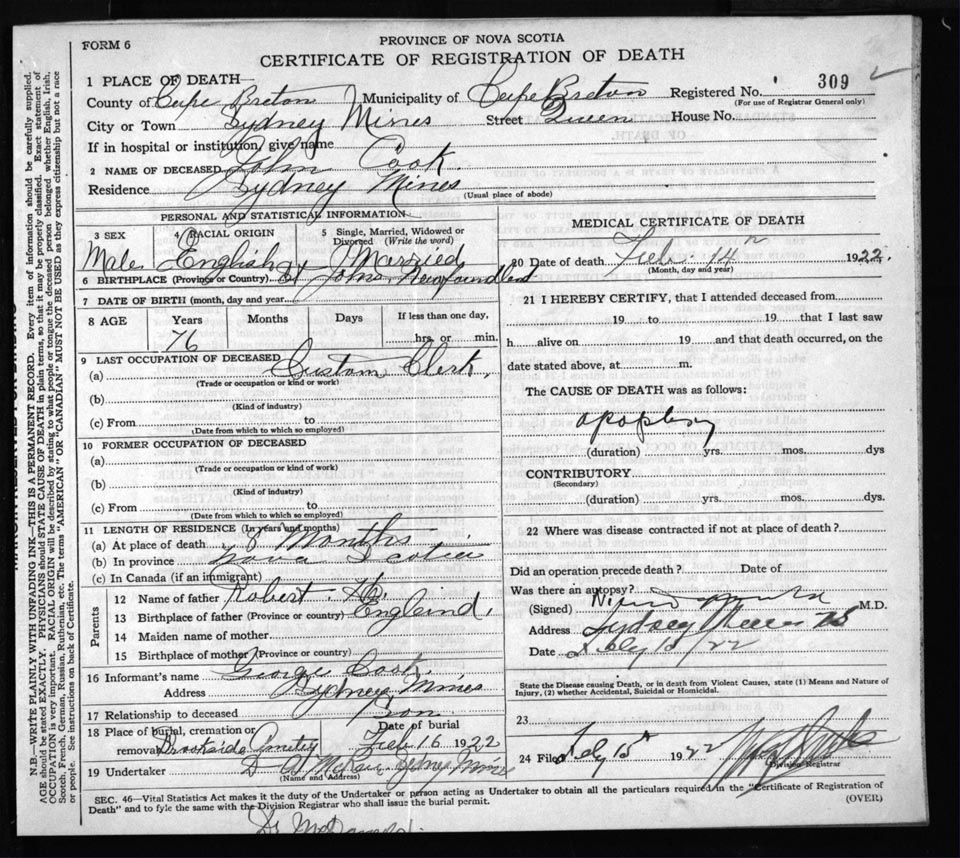 FORM 6
PROVINCE OF NOVA SCOTIA
CERTIFICATE OF REGISTRATION OF DEATH
1 PLACE OF DEATH
County of Cape Breton Municipality of Cape Breton Registered No. 309
(For use of Registrar General only)
City or Town Sydney Mines Street Queen House No.
If in hospital or institution, give name
2 NAME OF DECEASED John Cook.
Residence Sydney Mines
(Usual place of abode)
PERSONAL AND STATISTICAL INFORMATION
3 SEX Male
4 RACIAL ORIGIN English
5 Single, Married, Widowed or Divorced (Write the word) Married
6 BIRTHPLACE (Province or Country) St Johns Newfoundland
7 DATE OF BIRTH (month, day and year)
8 AGE Years Months Days If less than one day,
76 hrs. or min.
9 LAST OCCUPATION OF DECEASED
(a) Custom Clerk.
(Trade or occupation or kind or work)
(b)
(Kind of industry)
(c) From to
(Date from which to so employed)
10 FORMER OCCUPATION OF DECEASED
(a)
(Trade or occupation or kind of work)
(b)
(Kind of industry)
(c) From to
(Date from which to which so employed)
11 LENGTH OF RESIDENCE (In years and months)
(a) At place of death 8 Months
(b) In province Nova Scotia
(c) In Canada (if an immigrant)
Parents
12 Name of father Robert
13 Birthplace of father (Province or country) England.
14 Maiden name of mother
15 Birthplace of mother (Province or country)
16 Informant's name George Cook.
Address Sydney Mines
17 Relationship to deceased Son
18 Place of burial, cremation or removal Brookside Cemetery Date of burial Feb 16 1922
19 Undertaker Sydney Mines
(Name and Address)
MEDICAL CERTIFICATE OF DEATH
20 Date of death Feb. 14th 1922.
(Month, day and year)
21 I HEREBY CERTIFY, that I attended deceased from
19 to 19 that I last saw
h alive on 19 and that death occurred, on the
date stated above, at m.
The CAUSE OF DEATH was as follows:
apoplexy
(duration) yrs. mos. dys
CONTRIBUTORY
(Secondary)
(duration) yrs. mos. dys.
22 Where was disease contracted if not at place of death?
Did an operation precede death? Date of
Was there an autopsy?
(Signed) M.D.
Address Sydney Mines
Date 15/22
State the Disease causing Death, or in death from Violent Causes, state (1) Means and Nature of
Injury, (2) whether Accidental, Suicidal or Homicidal.
23
24 Filed Feby 15th 1922
Division Registrar
SEC. 46—Vital Statistics Act makes it the duty of the Undertaker or person acting as Undertaker to obtain all the particulars required in the "Certificate of Registration of
Death" and to fyle the same with the Division Registrar who shall issue the burial permit. (OVER)
N.B.—WRITE PLAINLY WITH UNFADING INK—THIS IS A PERMANENT RECORD. Every item of information should be carefully supplied.
AGE should be stated EXACTLY. PHYSICIANS should STATE CAUSE OF DEATH in plain terms, so that it may be properly classified. Exact statement of
OCCUPATION is very important. RACIAL ORIGIN will be described by stating to what people or tongue the deceased person belonged, whether English, Irish,
Scotch, French, German, Russian, Ruthenian, etc. The terms "AMERICAN" OR "CANADIAN" MUST NOT BE USED as they express citizenship but not a race
or people. See instructions on back of Certificate.